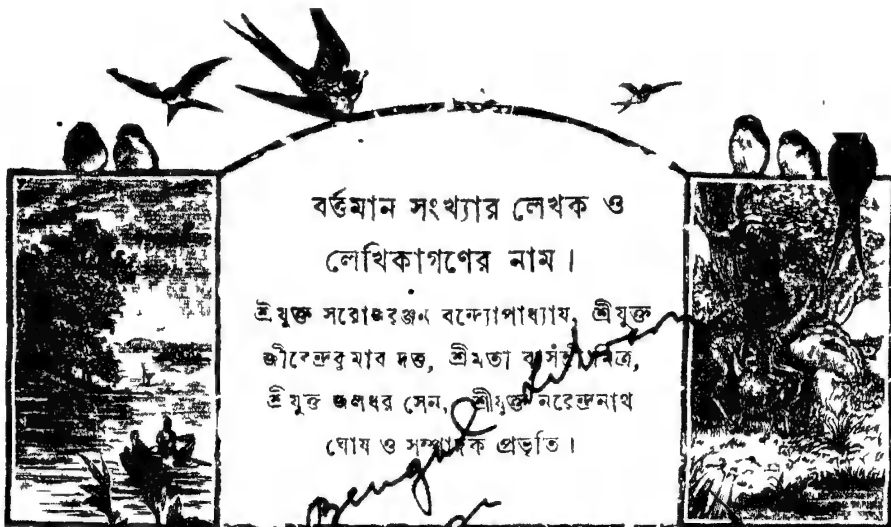 বর্ত্তমান সংখ্যার লেখক ও
লেখিকাগণের নাম।
শ্রীযুক্ত সরোজরঞ্জন বন্দ্যোপাধ্যায়, শ্রীযুক্ত
জীবেন্দ্রকুমার দত্ত, শ্রীমতী মিত্র,
শ্রীযুক্ত জলধর সেন, শ্রীযুক্ত নরেন্দ্রনাথ
ঘোষ ও সম্পাদক প্রভৃতি।
Bengal